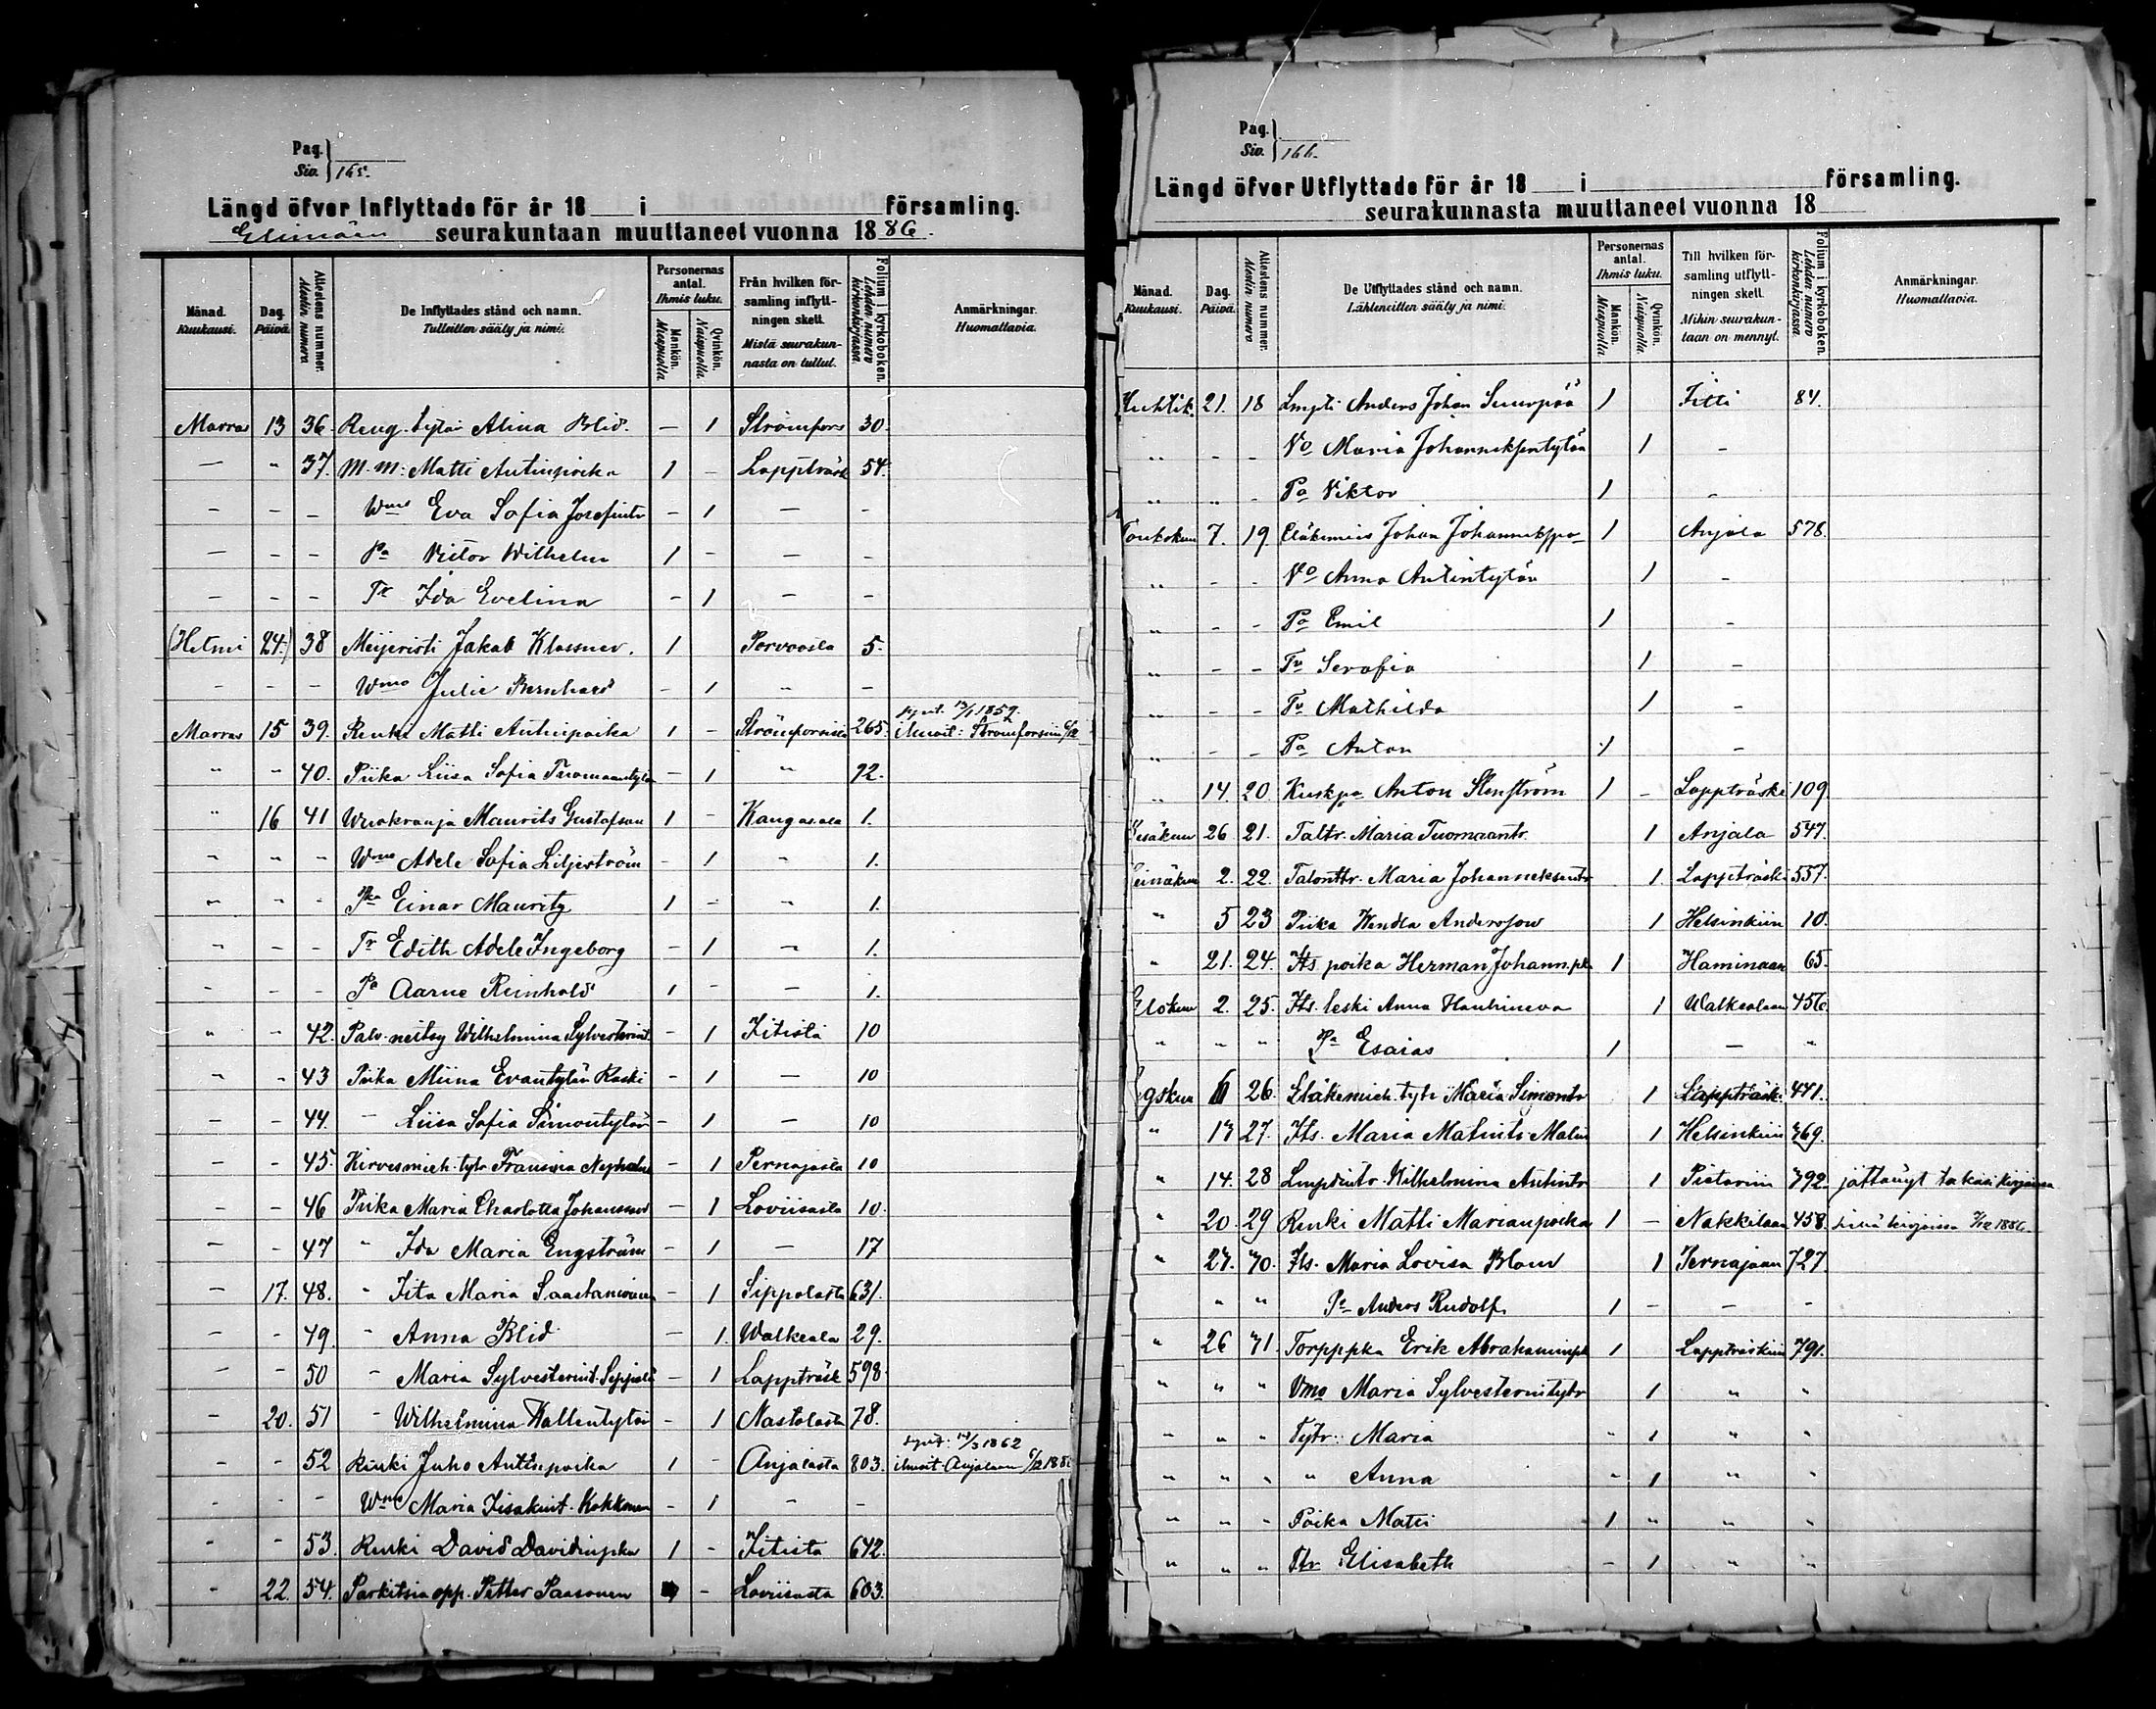 Pag.
Siv. 165.
Längd öfver Inflyttade för år 18 i församling.
Elimäen seurakuntaan muuttaneet vuonna 1886.
Månad. Kuukausi. Dag. Päivä. Attestens nummer. Alestin numero De Inflyttades stånd och namn. Tulleitten sääty ja nimi. Personernas antal. Ihmis luku. Mankön. Miespuolia Qvinkön. Naispuolia. Från hvilken församling inflyttningen skett. Mistä seurakunnasta on tullut. Folium i kyrkoboken. Lehden numero kirkonkirjassa Anmärkningar. Huomattavia.
Marras 13 36. Reng. tytär Alina Blid. - 1 Strömfors 30.
- " 37. M.m: Matti Antinpoika 1 - Lappträsk 54.
- - - Wmo Eva Sofia Josefintr - 1 - -
- - - Pa Victor Wilhelm 1 - - -
- - - Tr Ida Evelina - 1 - -
(Helmi 24.) 38 Meijeristi Jakob Klassner. 1 Porvoosta 5.
- - - Wmo Julie Bernhard - 1 " -
synt. 13/1 1859.
Marras 15 39. Renki Matti Antinpoika 1 - Strömforsista 265. ilmoit: Strömforsiin 6/12
" - 40. Piika Liisa Sofia Tuomaantytär - 1 " 92.
" 16 41 Maurits Gustafson 1 - Kangasala 1.
" " " Wmo Adele Sofia Liljeström - 1 - 1.
" - - Pka Einar Mauritz 1 - " 1.
" - - Tr Edith Adele Ingeborg - 1 - 1.
- - - Pa Aarne Reinhold 1 - - 1.
" - 42. Palv. neitsy Wilhelmina Sylvesterint. - 1 Iitistä 10
- - 43 Piika Miina Evantytär Raski - 1 - 10
- - 44. - Liisa Sofia Simontytär - 1 - 10
- - 45. Kirvesmieh. tytr Fransina - 1 Pernajasta 10
- - 46 Piika Maria Charlotta Johansson - 1 Loviisasta 10.
- - 47 " Ida Maria Engström - 1 - 17
- 17. 48. " Iita Maria Saastamoinen - 1 Sippolasta 631.
- - 49. - Anna Blid - 1. Walkeala 29.
- - 50 - Maria Sylvesterint. Seppälä - 1 Lappträsk 598.
- 20. 51 - Wilhelmina Kallentytär - 1 Nastolasta 78.
synt: 14/3 1862
- - 52 Renki Juho Antinpoika 1 - Anjalasta 803. ilmoit Anjalaan 6/12 188
- - - Wmo Maria Iisakint. Kokkonen - 1 - -
- - 53. Renki David Davidinpka 1 - Iitistä 642.
- 22. 54. Parkitsia opp. Petter Paasonen 1 - Loviisasta 603.
Pag.
Siv. 166.
Längd öfver Utflyttade för år 18 i församling.
seurakunnasta muuttaneet vuonna 18
Månad. Kuukausi. Dag. Päivä. Attestens nummer. Alestin numero De Utflyttades stånd och namn. Lähteneitten sääty ja nimi. Personernas antal. Ihmis luku. Mankön. Miespuolia Qvinkön. Naispuolia. Till hvilken församling utflyttningen skett. Mihin seurakuntaan on mennyt. Folium i kyrkoboken. Lehden numero kirkonkirjassa Anmärkningar. Huomattavia.
Huhtik. 21. 18 Lmpti Anders Johan Suurpää 1 Iitti 84.
" - - Vo Maria Johanneksentytär 1 -
" " - Pa Viktor 1 -
Toukokuu 7. 19. Eläkemies Johan Johannekspo 1 Anjala 578.
" - - Vo Anna Antintytär 1 -
" - - Pa Emil 1 -
" - - Tr Serafia 1 -
" - - Tr Mathilda 1 -
" - - Pa Anton 1 -
" 14. 20. Kuskpo Anton Stenström 1 - Lappträski 109
Kesäkuu 26 21. Taltr. Maria Tuomaantr. 1 Anjala 547.
Heinäkuu 2. 22. Talonttr. Maria Johanneksentr 1. Lappträski 557.
" 5 23 Piika Hendla Andersson 1 Helsinkiin 10.
" 21. 24. Its. poika Herman Johann.pka 1 Haminaan 65.
Elokuu 2. 25. Its. leski Anna Hauhineva 1 Walkealaan 456.
" " " Pa Esaias 1 - "
Sysku 11 26. Eläkemieh. tytr Maria Simontr 1 Lappträski 441.
" 13 27. Its. Maria Matintr Malin 1 Helsinkiin 369.
" 14. 28 Lmpdintr. Wilhelmina Antintr 1 Pietariin 392. jättänyt takaisi kirjansa
" 20. 29 Renki Matti Marianpoika 1 - Nakkilaan 458. 1886.
" 27. 30. Its. Maria Lovisa Blom 1 Pernajaan 727.
" " Pa Anders Rudolf. 1 - - -
" 26 31. Torpppka Erik Abrahaminpk 1 Lappträskiin 791.
" " " Vmo Maria Sylvesterintytr 1 " "
" " " Tytr: Maria " 1 " "
" " " " Anna " 1 " "
" " " Poika Matti 1 " " "
" " " Ttr Elisabeth - 1 " "